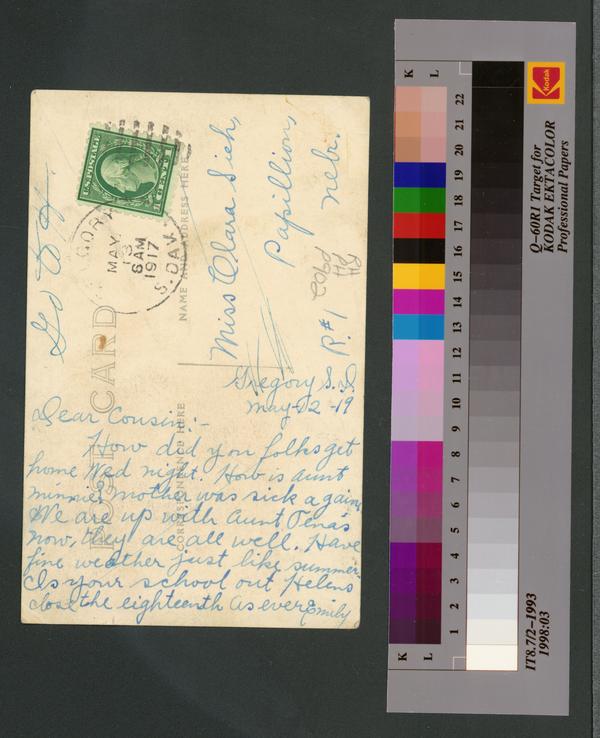 U.S. POSTAGE
GREGORY
MAY
13
6 AM
1917
S. DAK.
POST CARD
CORRESPONDENCE HERE
NAME AND ADDRESS HERE
Miss Clara Sieh,
Papillion,
Nebr.
R#1
Gregory S.D.
May-12-19
Dear Cousin:-
How did you folks get
home Wed night. How is aunt
minnie? mother was sick again,
We are up with Aunt Tena's
now, they are all well. Have
fine weather just like summer.
Is your school out Helens
close the eighteenth as ever Emily
K L
22
21
20
19
18
17
16
15
14
13
12
11
10
9
8
7
6
5
4
3
2
1
K L
Kodak
Q-60R1 Target for
KODAK EKTACOLOR
Professional Papers
IT8.7/2-1993
1998:03